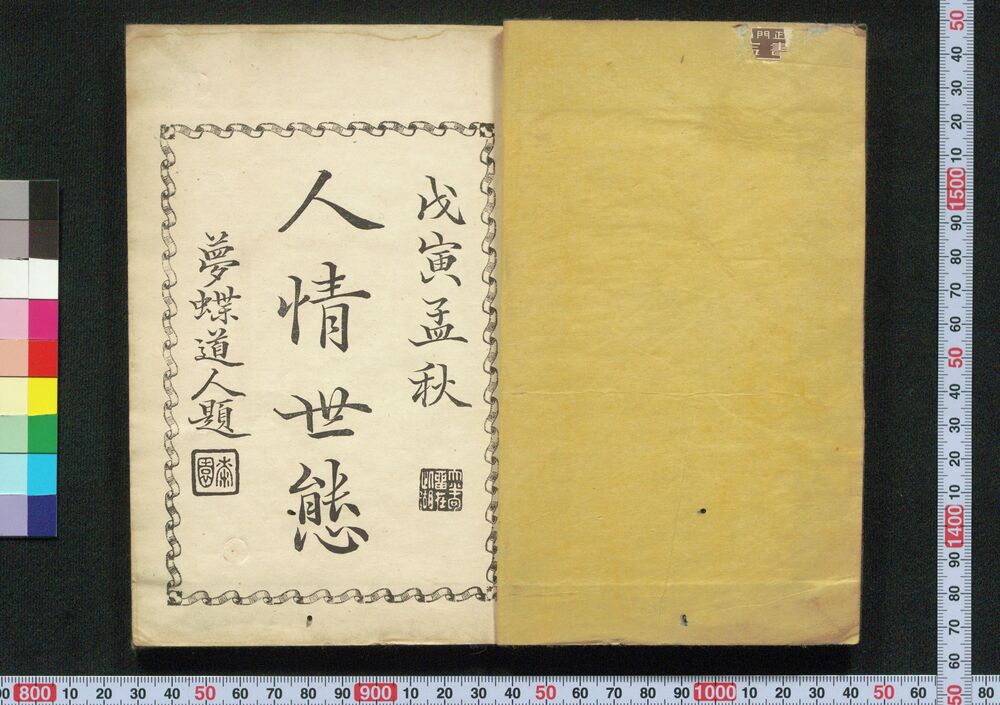 戊寅孟秋
人情世態
夢蝶道人題
50
40
30
20
10
1500
90
80
70
60
50
40
30
20
10
1400
90
80
70
60
50
800
10
20
30
40
50
60
70
80
90
900
10
20
30
40
50
60
70
80
90
1000
10
20
30
40
50
60
80